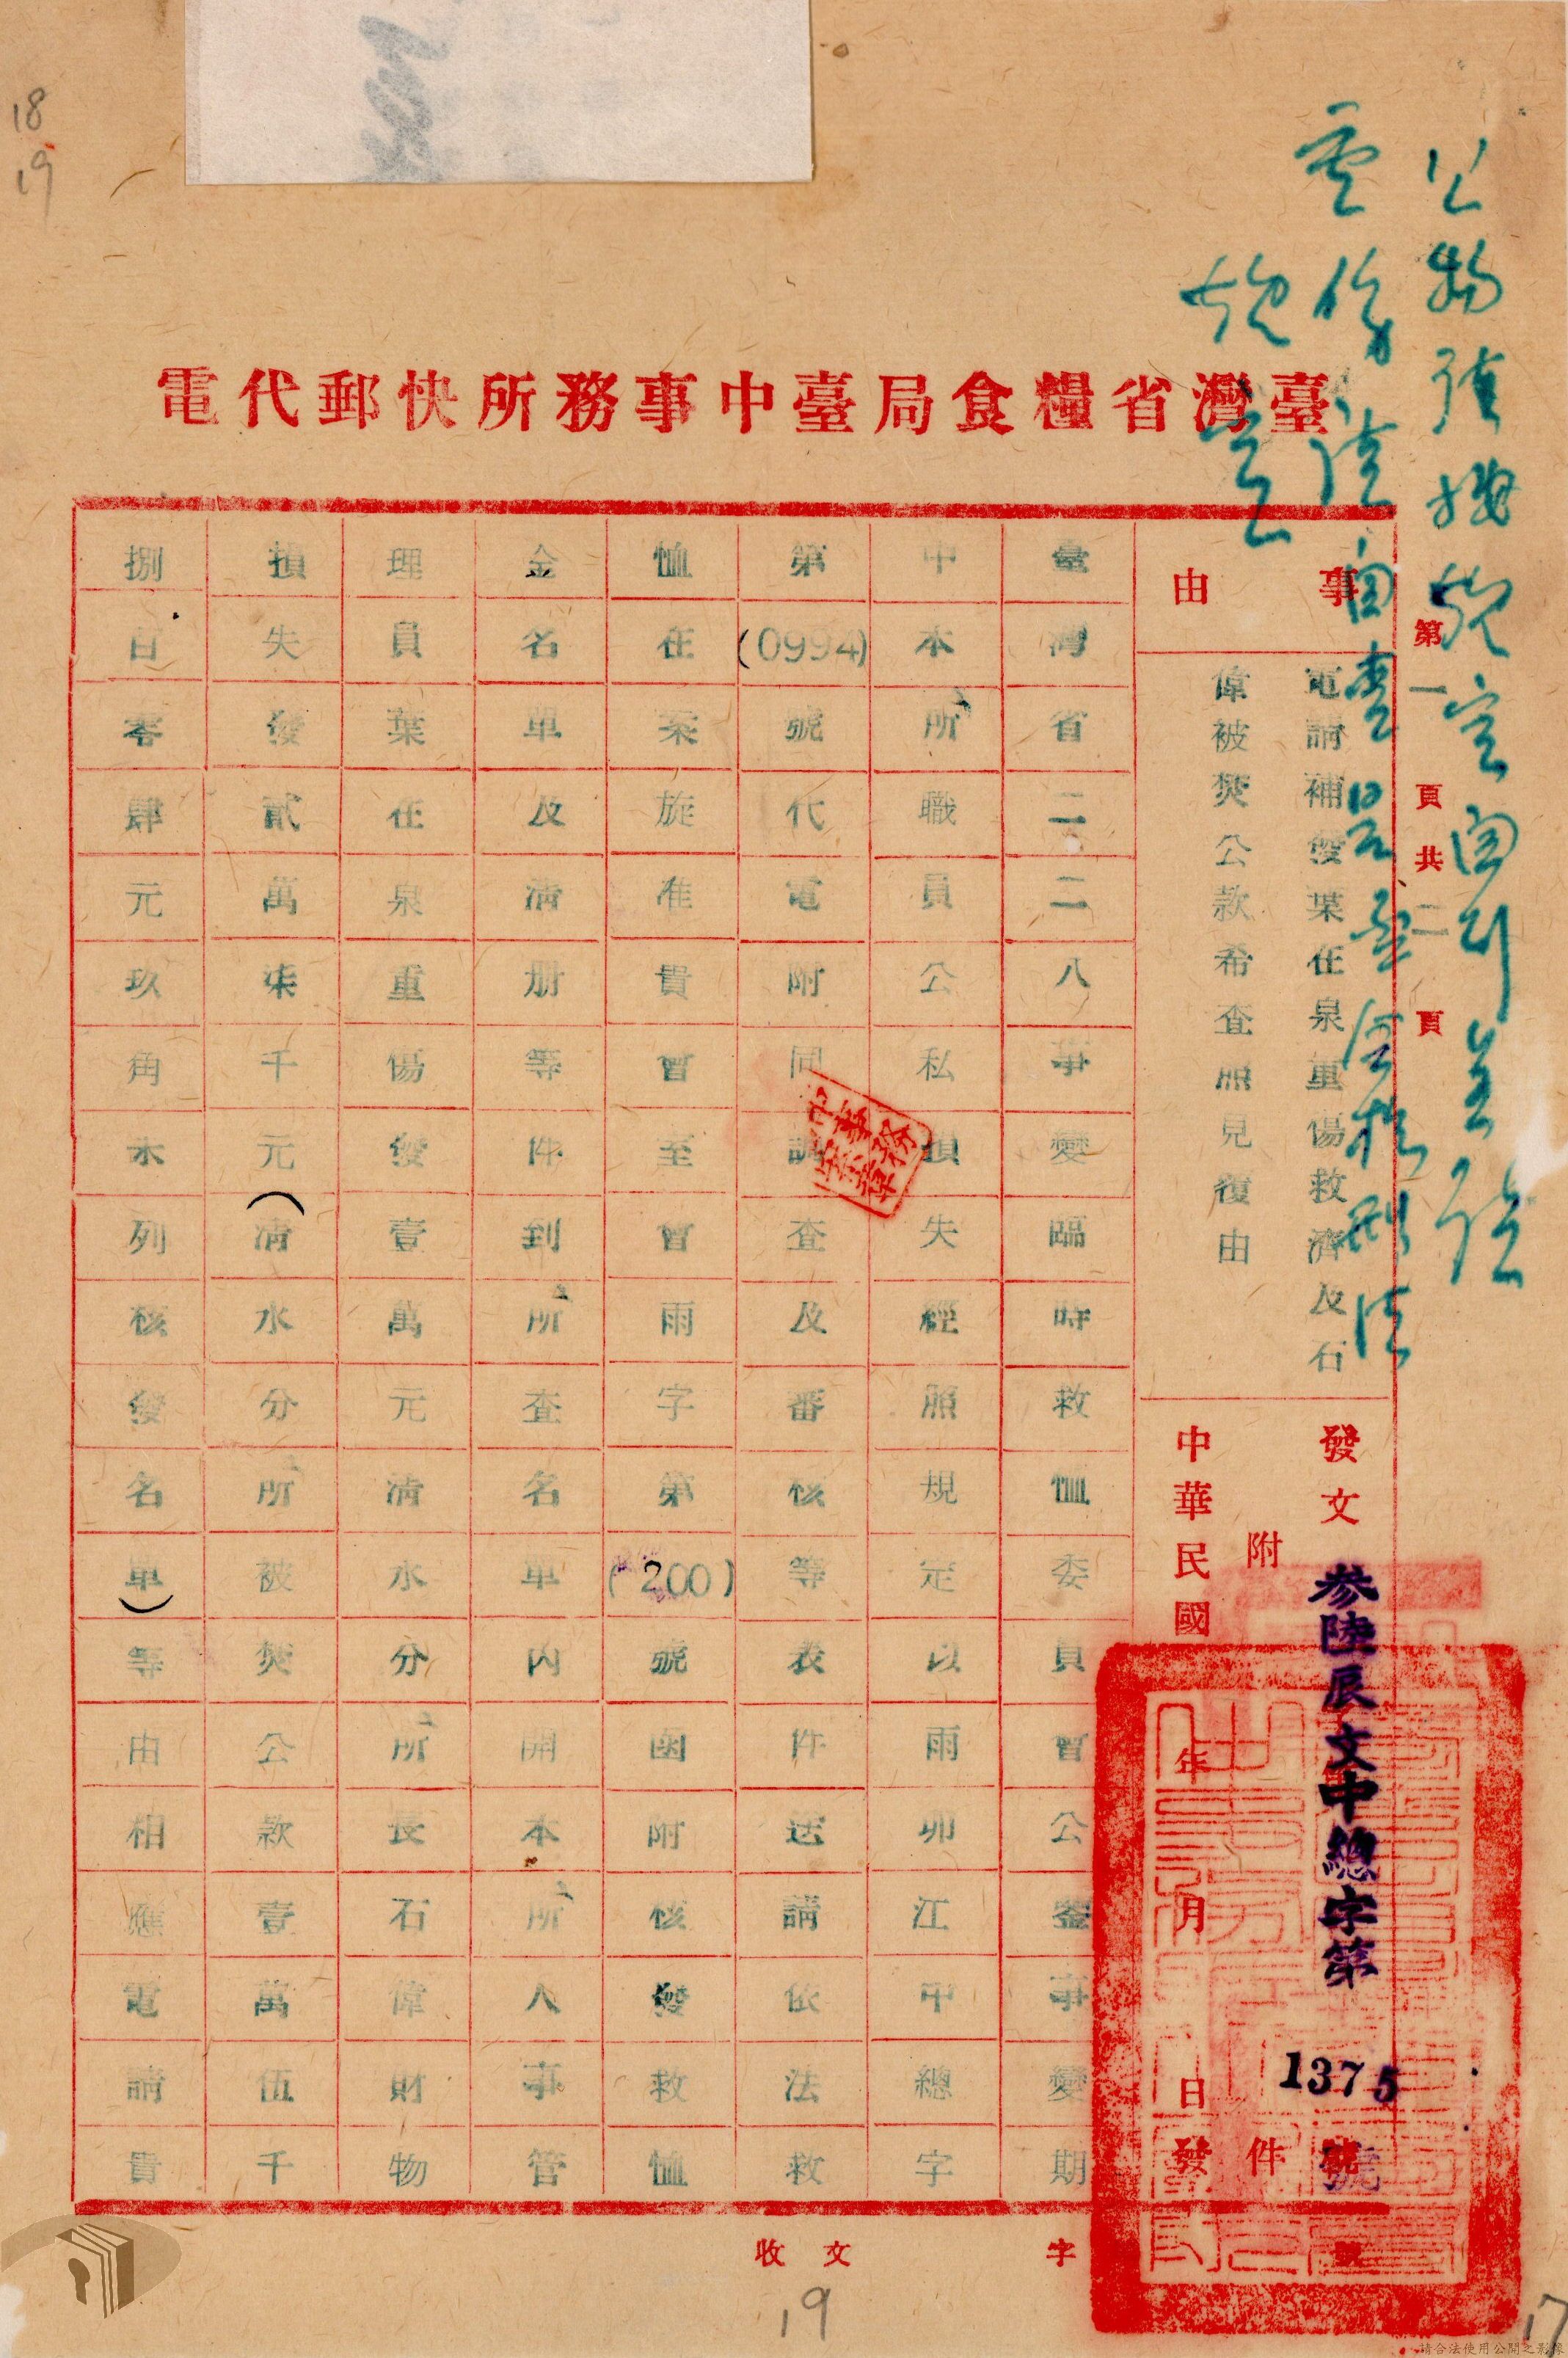 臺灣省糧食局臺中事務所快郵代電
第一頁共二頁
事由
電請補發葉在泉重傷救濟及石
偉被焚公款希查照見復由
發文 參陸辰文中總字第 1375 號
附 件
中華民國 年 月 日發
臺灣省二二八事變臨時救恤委員會公鑒事變期
中本所職員公私損失經照規定以雨卯江中總字
第(0994)號代電附同調查及審核等表件送請依法救
恤在案旋准貴會至會雨字第(200)號函附核發救恤
金名單及清册等件到所查名單內開本所人事管
理員葉在泉重傷發壹萬元清水分所長石偉財物
損失發貳萬柒千元(清水分所被焚公款壹萬伍千
捌百零肆元玖角未列核發名單)等由相應電請貴
收文 字 號
18
19
19
17
請合法使用公開之影像